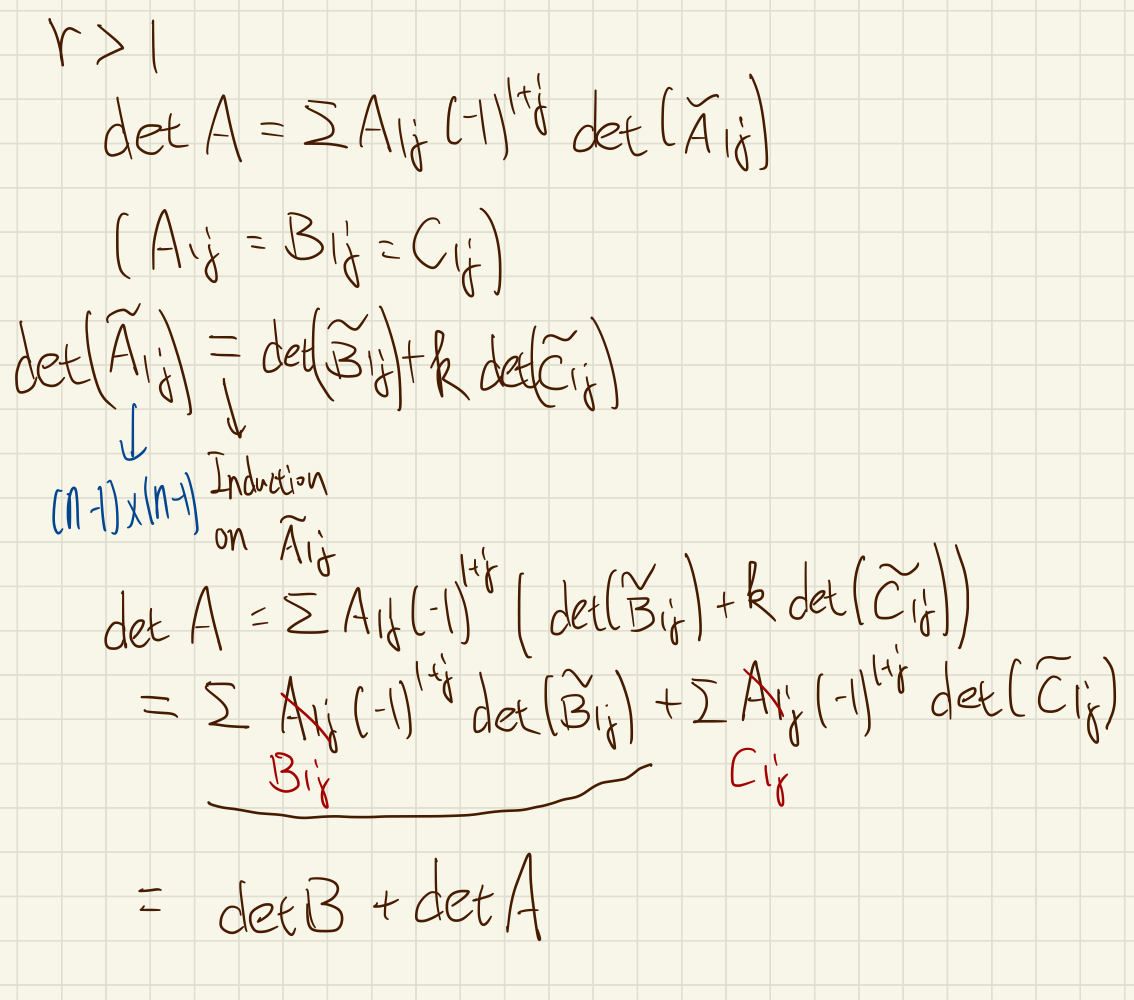 r > 1
det A = Σ A₁ⱼ (-1)¹⁺ʲ det (Ã₁ⱼ)
(A₁ⱼ = B₁ⱼ = C₁ⱼ)
det(Ã₁ⱼ) = det(B̃₁ⱼ) + k det(C̃₁ⱼ)
↓ ↓
(n-1)x(n-1) Induction
on Ã₁ⱼ
det A = Σ A₁ⱼ (-1)¹⁺ʲ (det(B̃₁ⱼ) + k det(C̃₁ⱼ))
= Σ A₁ⱼ (-1)¹⁺ʲ det(B̃₁ⱼ) + Σ A₁ⱼ (-1)¹⁺ʲ det(C̃₁ⱼ)
B₁ⱼ C₁ⱼ
= det B + det A